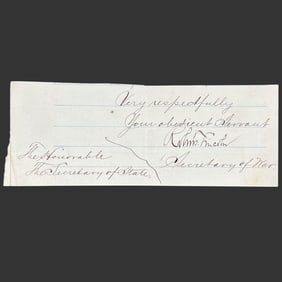 Very respectfully
Your obedient Servant
Robt. T. Lincoln
Secretary of War
The Honorable
The Secretary of State